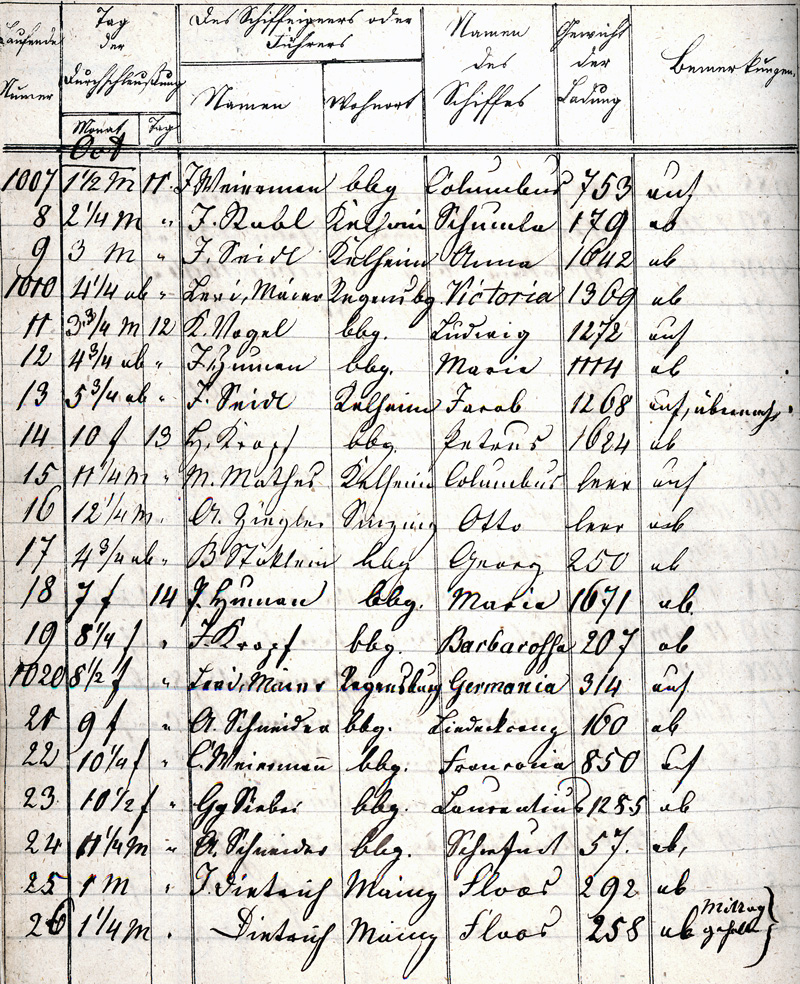 Laufende Numer
Tag der Durchschleußung
Monat Tag
Des Schiffeigners oder Führers
Namen Wohnort
Namen des Schiffes
Gewicht der Ladung
Bemerkungen
Oct
1007 1 1/2 M 11. J. Weiermen bbg Columbus 753 auf
8 2 1/4 M " J. Stabl Kelheim Schumla 179 ab
9 3 M " J. Seidl Kelheim Anna 1642 ab
1010 4 1/4 ab " Levi, Maier Regensbg Victoria 1369 ab
11 3 3/4 M 12 K. Vogel bbg. Ludwig 1272 auf
12 4 3/4 ab " J. Human bbg. Maria 1114 ab
13 5 3/4 ab " J. Seidl Kelheim Jacob 1268 auf, übernacht
14 10 f 13 H. Kropf bbg. Petrus 1624 ab
15 11 1/4 M " M. Mathes Kelheim Columbus leer auf
16 12 1/4 M. A. Ziegler Sinzing Otto leer ab
17 4 3/4 ab " B Stöklein bbg Georg 250 ab
18 7 f 14 J. Human bbg. Maria 1671 ab
19 8 1/4 f " J. Kropf bbg. Barbarossa 207 ab
1020 8 1/2 f " Levi, Maier Regensburg Germania 314 auf
21 9 f " A. Schneider bbg. 160 ab
22 10 1/4 f " C. Weiermen̄ bbg. Franconia 850 auf
23 10 1/2 f " Gg Sieber bbg. Laurentius 1285 ab
24 11 1/4 M " A. Schneider bbg. 57. ab,
25 1 M " J. Dietrich Mainz Floos 292 ab
26 1 1/4 M. Dietrich Mainz Floos 258 ab Mittag